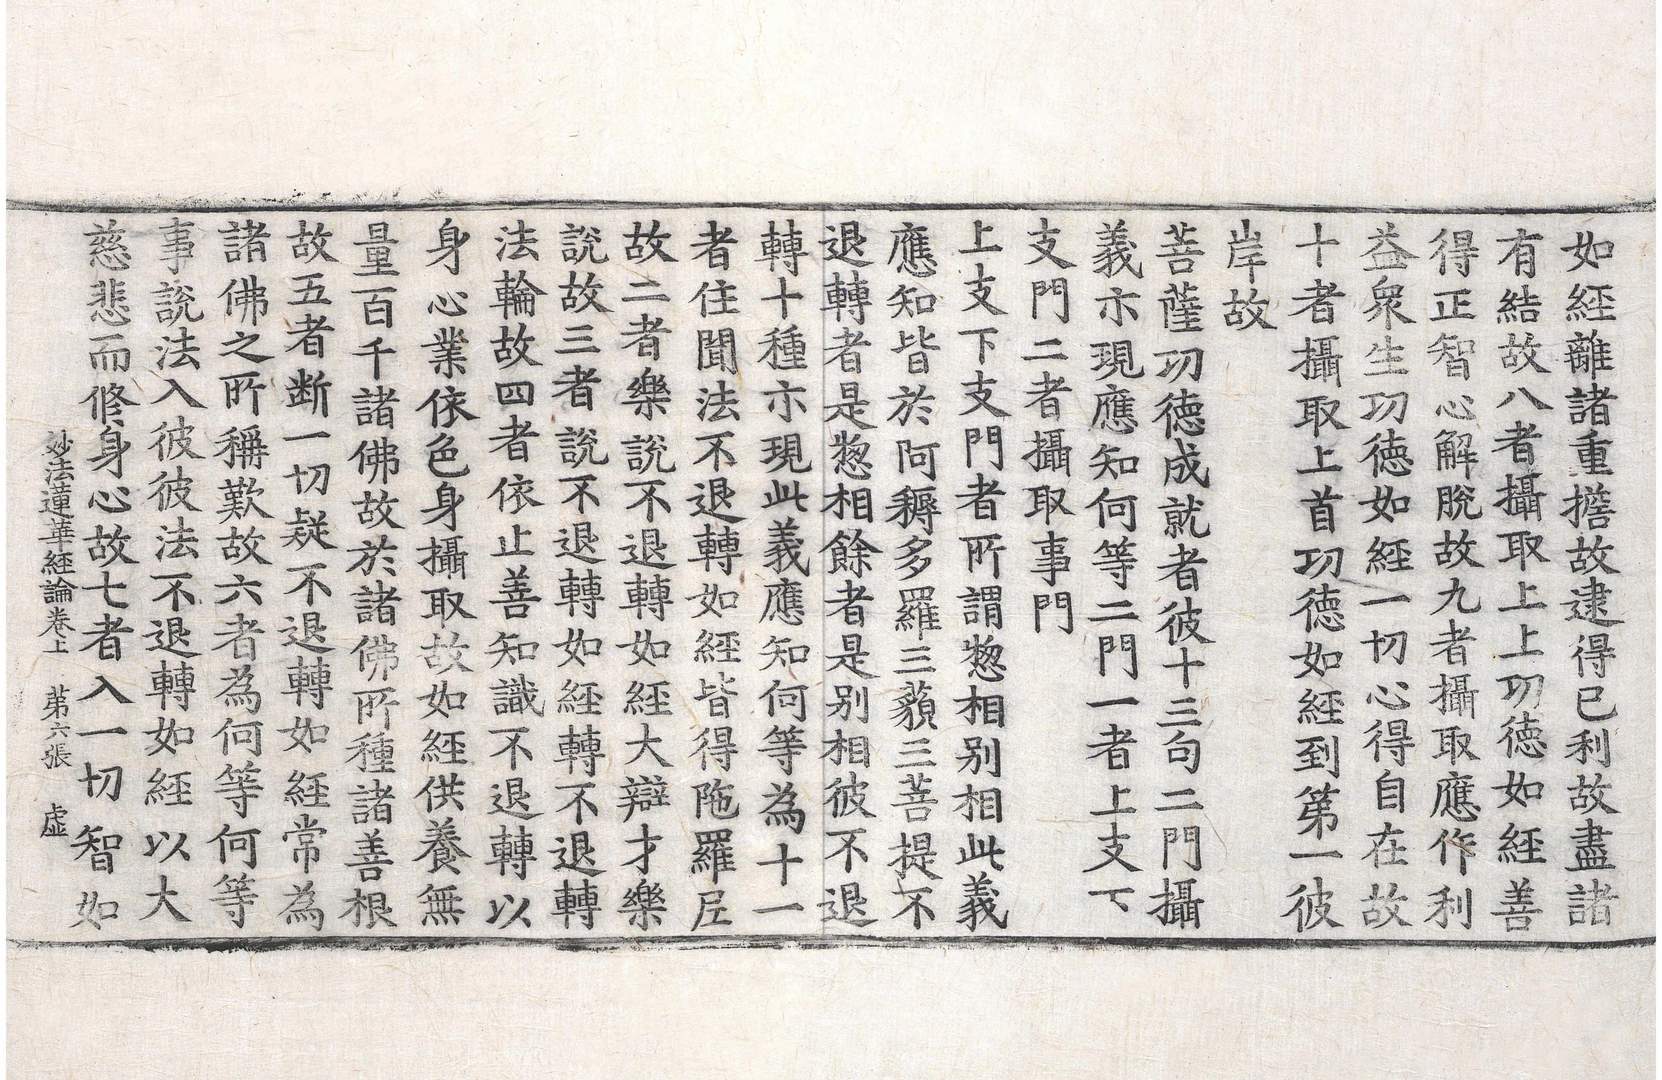 如經離諸重擔故逮得已利故盡諸
有結故八者攝取上上功徳如經善
得正智心解脫故九者攝取應作利
益衆生功徳如經一切心得自在故
十者攝取上首功徳如經到第一彼
岸故
菩薩功徳成就者彼十三句二門攝
義示現應知何等二門一者上支下
支門二者攝取事門
上支下支門者所謂惣相別相此義
應知皆於阿耨多羅三藐三菩提不
退轉者是惣相餘者是別相彼不退
轉十種示現此義應知何等為十一
者住聞法不退轉如經皆得陁羅尼
故二者樂說不退轉如經大辯才樂
說故三者說不退轉如經轉不退轉
法輪故四者依止善知識不退轉以
身心業依色身攝取故如經供養無
量百千諸佛故於諸佛所種諸善根
故五者断一切疑不退轉如經常為
諸佛之所稱歎故六者為何等何等
事說法入彼彼法不退轉如經以大
慈悲而修身心故七者入一切智如
妙法蓮華經論卷上 第六張 虛